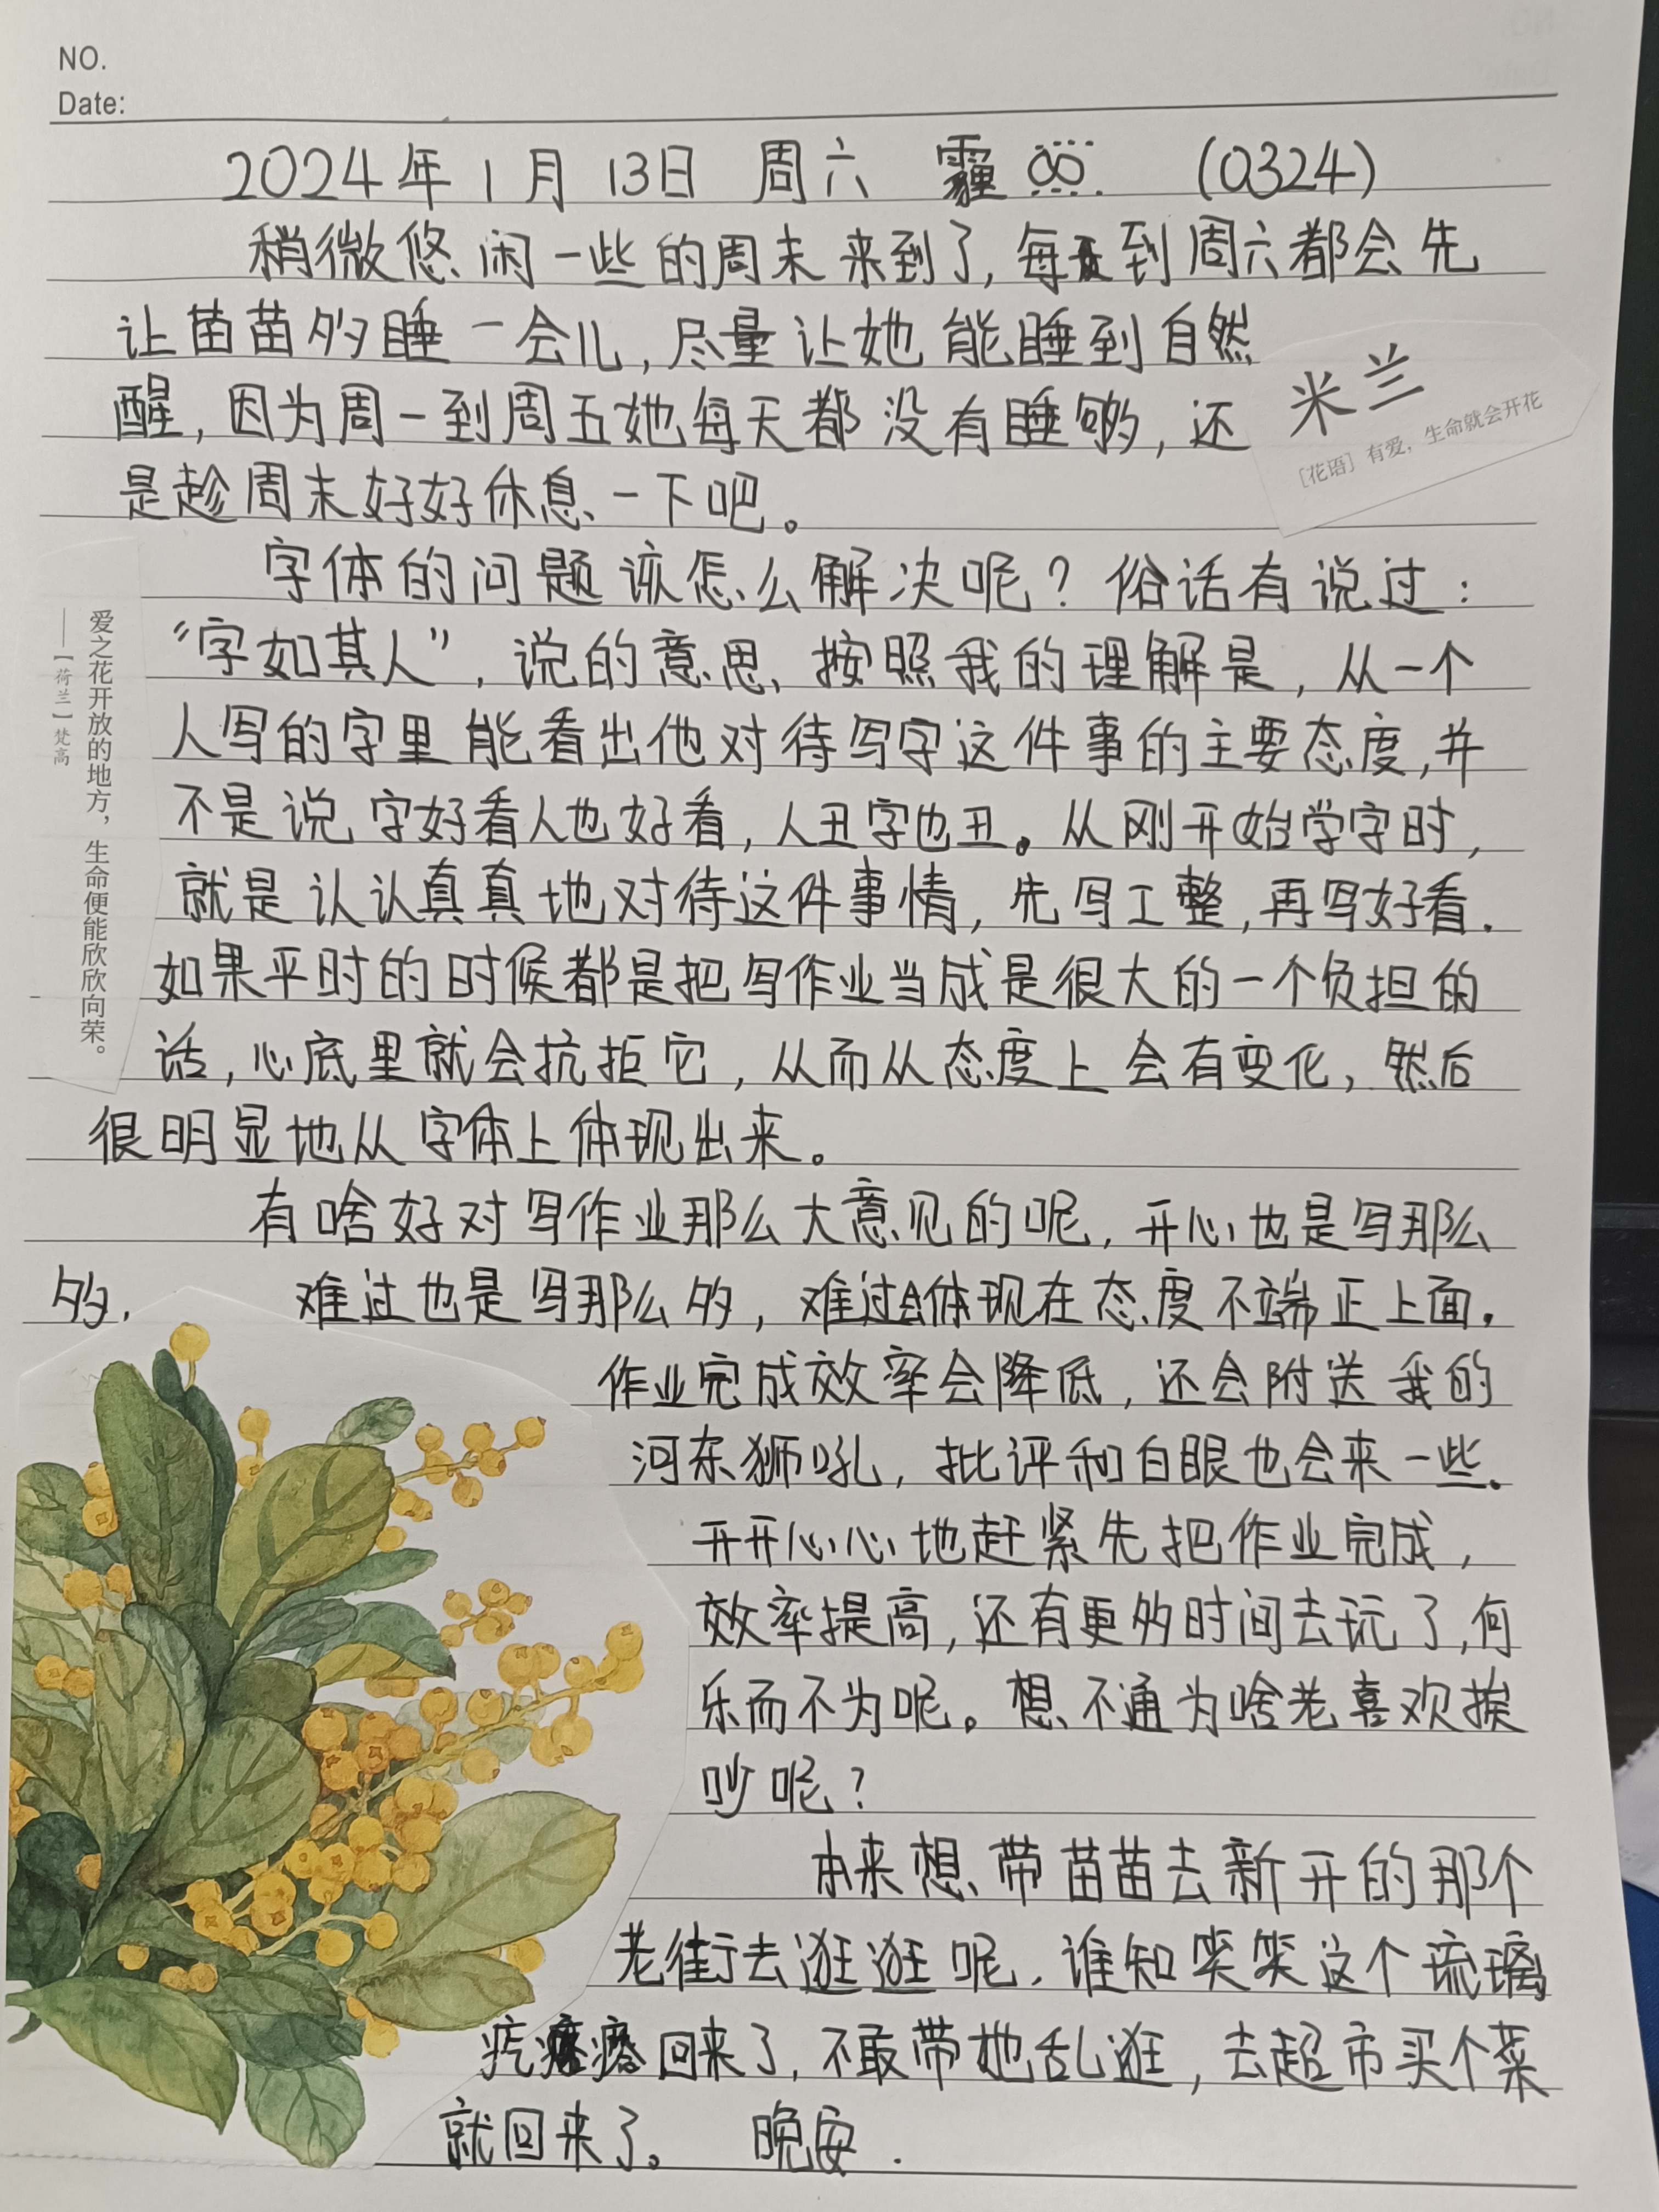 NO.
Date:
2024年1月13日 周六 霾 (0324)
稍微悠闲一些的周末来到了，每到周六都会先
让苗苗多睡一会儿，尽量让她能睡到自然
醒，因为周一到周五她每天都没有睡够，还
是趁周末好好休息一下吧。
米兰
[花语] 有爱，生命就会开花
爱之花开放的地方，生命便能欣欣向荣。
——[荷兰] 梵高
字体的问题该怎么解决呢？俗话有说过：
“字如其人”，说的意思，按照我的理解是，从一个
人写的字里能看出他对待写字这件事的主要态度，并
不是说字好看人也好看，人丑字也丑。从刚开始学字时，
就是认认真真地对待这件事情，先写工整，再写好看.
如果平时的时候都是把写作业当成是很大的一个负担的
话，心底里就会抗拒它，从而从态度上会有变化，然后
很明显地从字体上体现出来。
有啥好对写作业那么大意见的呢，开心也是写那么
多， 难过也是写那么多，难过会体现在态度不端正上面.
作业完成效率会降低，还会附送我的
河东狮吼，批评和白眼也会来一些.
开开心心地赶紧先把作业完成，
效率提高，还有更多时间去玩了，何
乐而不为呢。想不通为啥老喜欢挨
吵呢？
本来想带苗苗去新开的那个
老街去逛逛呢，谁知笑笑这个琉璃
疙瘩回来了，不敢带她乱逛，去超市买个菜
就回来了。 晚安.